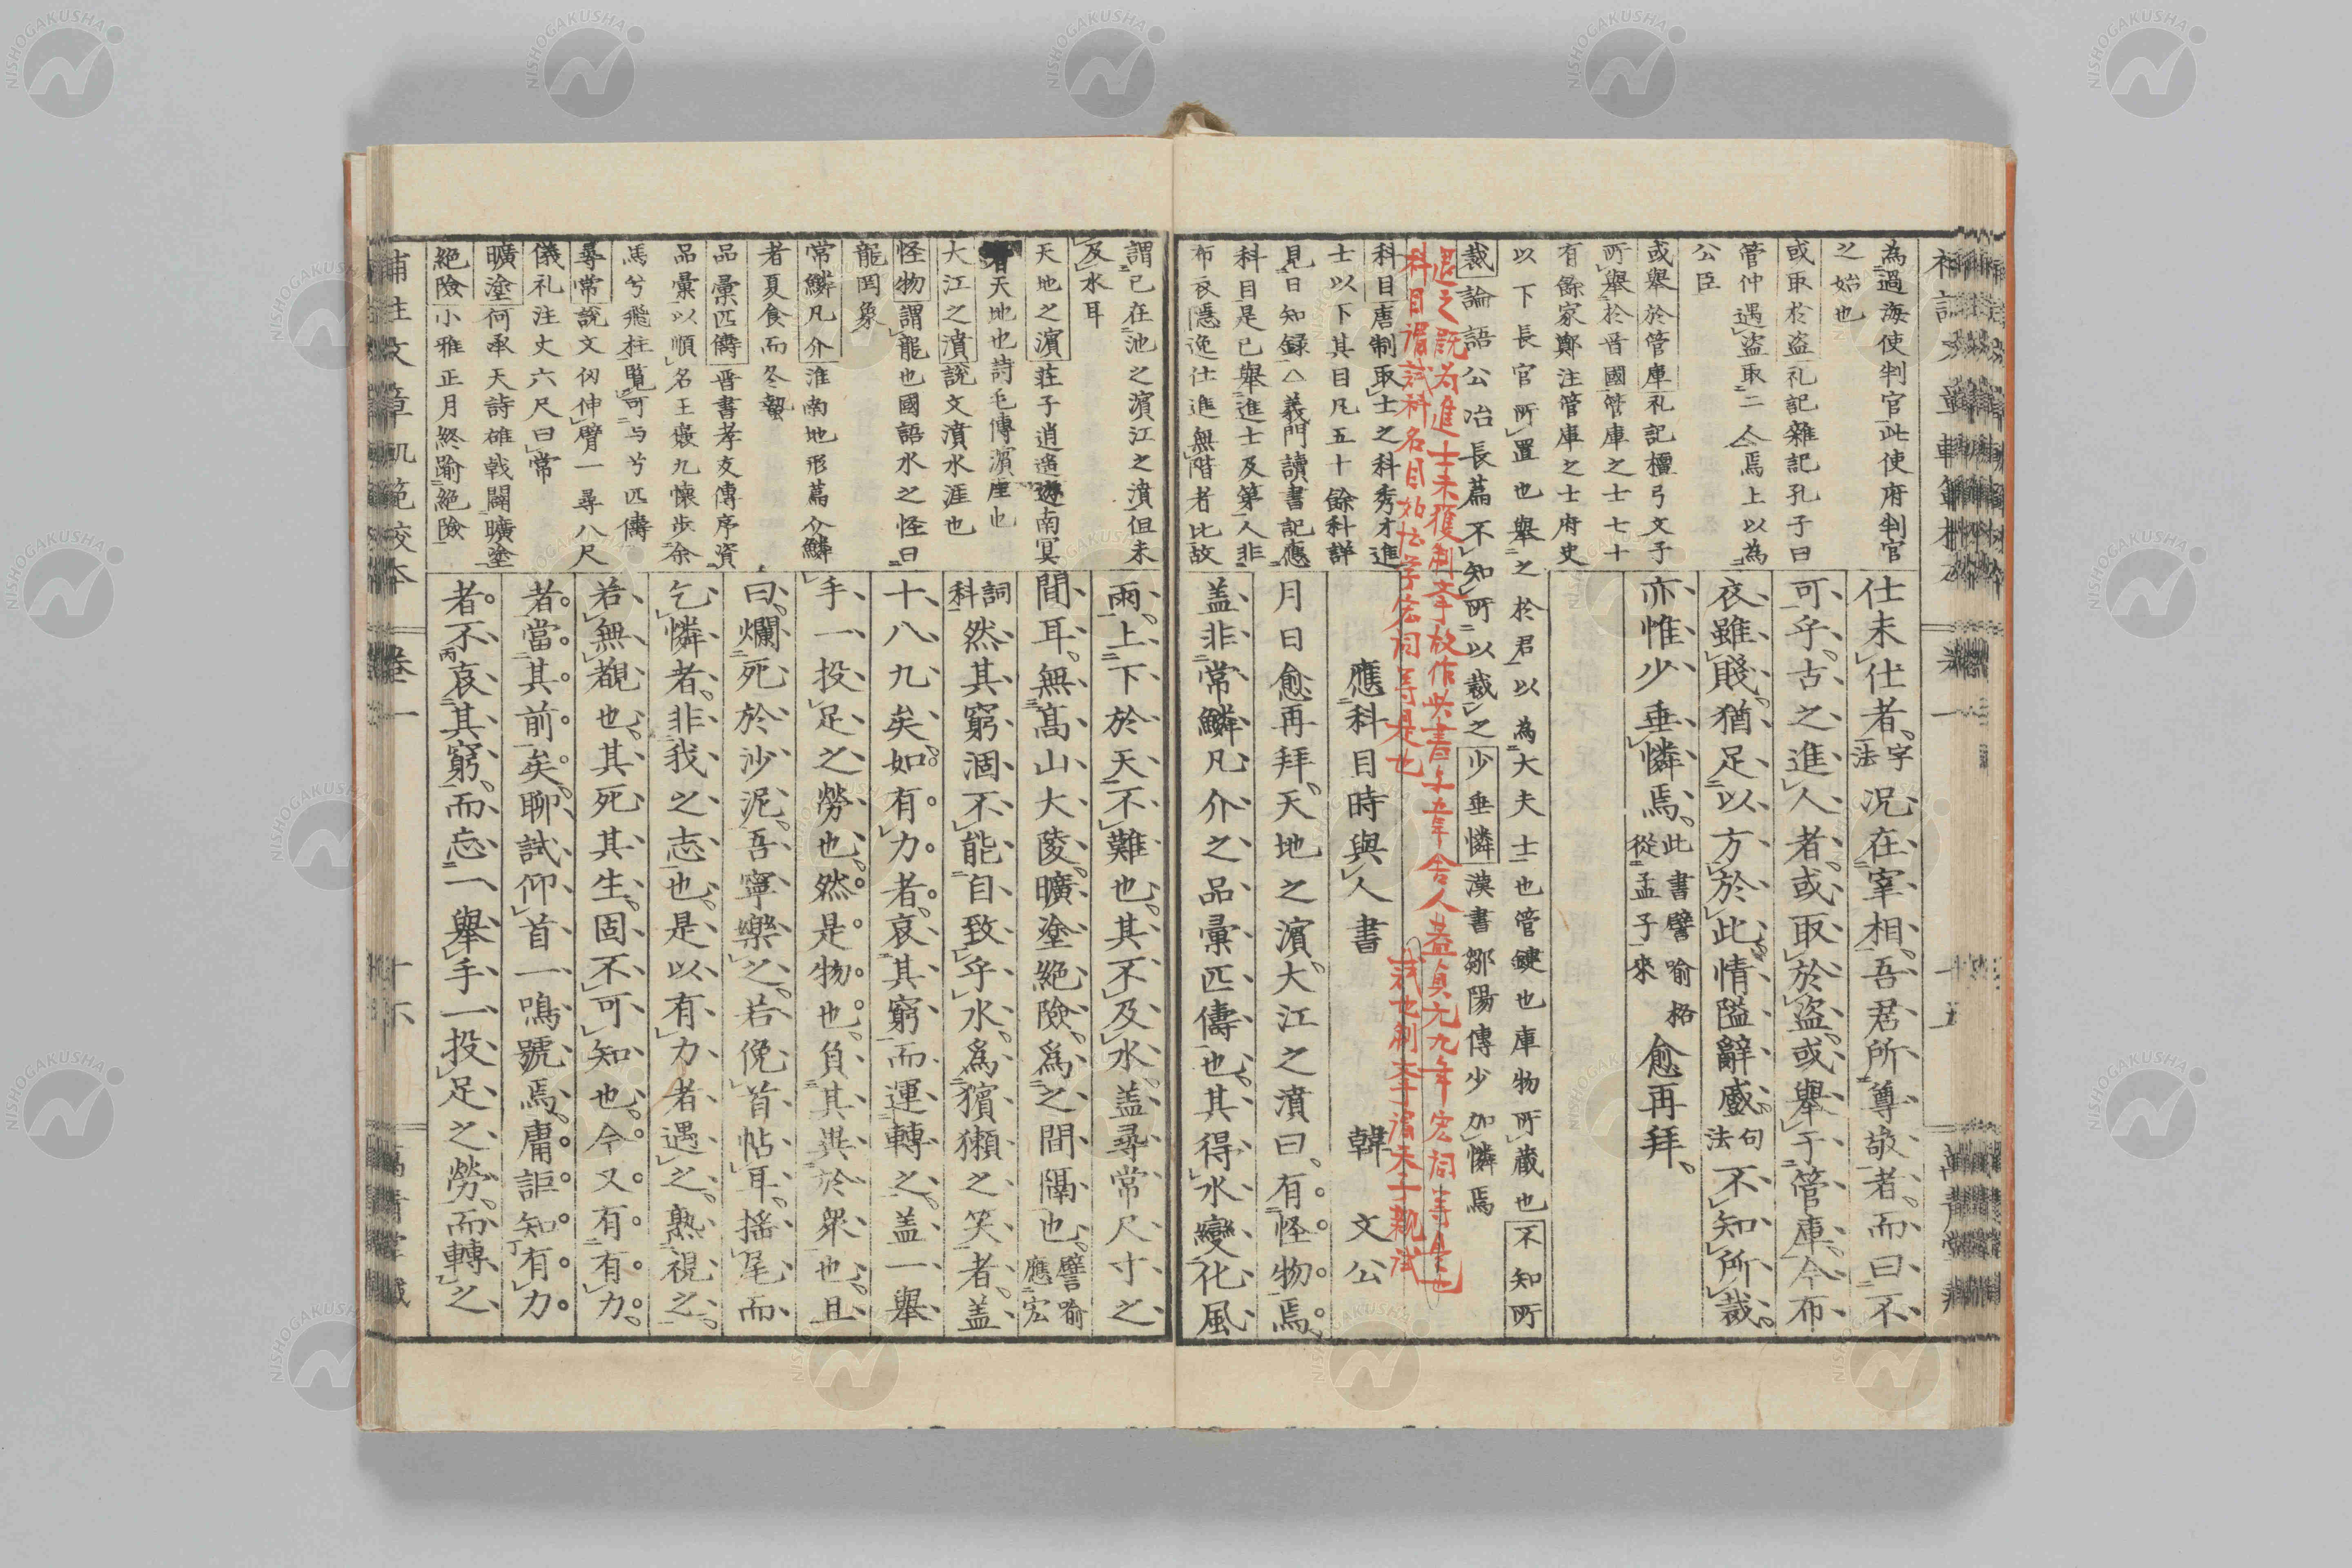 為過海使判官此使府判官
之始也
或取於盗礼記雜記孔子曰
管仲遇盗取二人焉上以為
公臣
或舉於管庫礼記檀弓文子
所舉於晋國管庫之士七十
有餘家鄭注管庫之士府史
以下長官所置也舉之於君以為大夫士也管鍵也庫物所蔵也不知所
裁論語公冶長篇不知所以裁之少垂憐漢書鄒陽傳少加憐焉
仕未仕者字法況在宰相吾君所尊敬者而曰不
可乎古之進人者或取於盗或舉于管庫今布
衣雖賤猶足以方於此情隘辭蹙句法不知所裁
亦惟少垂憐焉此書譬喻格從孟子來愈再拜
愚之既為進士未獲制挙故作此書与韋舍人蓋貞元九年宏詞等是也
科目謂試科名目如拔學宏詞等是也
科目唐制取士之科秀才進
士以下其目凡五十餘科詳
見日知録△義門讀書記應
科目是已舉進士及第人非
布衣隱逸仕進無階者比故
應科目時與人書 韓文公
月日愈再拜天地之濱大江之濆曰有怪物焉
盖非常鱗凡介之品彙匹儔也其得水變化風
謂已在池之濱江之濆但未
及水耳
天地之濱莊子逍遙遊南冥
者天地也詩毛傳濱厓也
大江之濆説文濆水涯也
怪物謂龍也國語水之怪曰
龍罔象
常鱗凡介淮南地形篇介鱗
者夏食而冬蟄
品彙匹儔晋書孝友傳序資
品彙以順名王襃九懷步余
馬兮飛柱覧可与兮匹儔
尋常説文仞伸臂一尋八尺
儀礼注丈六尺曰常
曠塗何承天詩雄戟闢曠塗
絕險小雅正月終踰絕險
雨上下於天不難也其不及水盖尋常尺寸之
間耳無高山大陵曠塗絕險為之間隔也譬喻應宏
詞科然其窮涸不能自致乎水為獱獺之笑者盖
十八九矣如有力者哀其窮而運轉之盖一舉
手一投足之勞也然是物也負其異於衆也且
曰爛死於沙泥吾寧樂之若俛首帖耳搖尾而
乞憐者非我之志也是以有力者遇之熟視之
若無覩也其死其生固不可知也今又有有力
者當其前矣聊試仰首一鳴號焉庸詎知有力
者不哀其窮而忘一舉手一投足之勞而轉之
補註文章軌範校本 卷一 十六